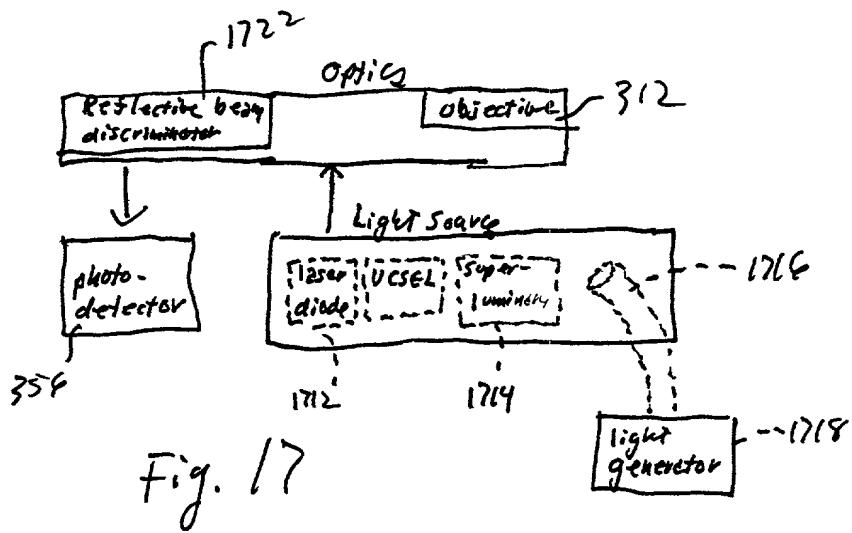 1722
Optics
Reflective beam
discriminator
Objective
312
Light Source
photo-
detector
laser
diode
VCSEL
Super-
luminens
1716
356
1712
1714
light
generator
1718
Fig. 17